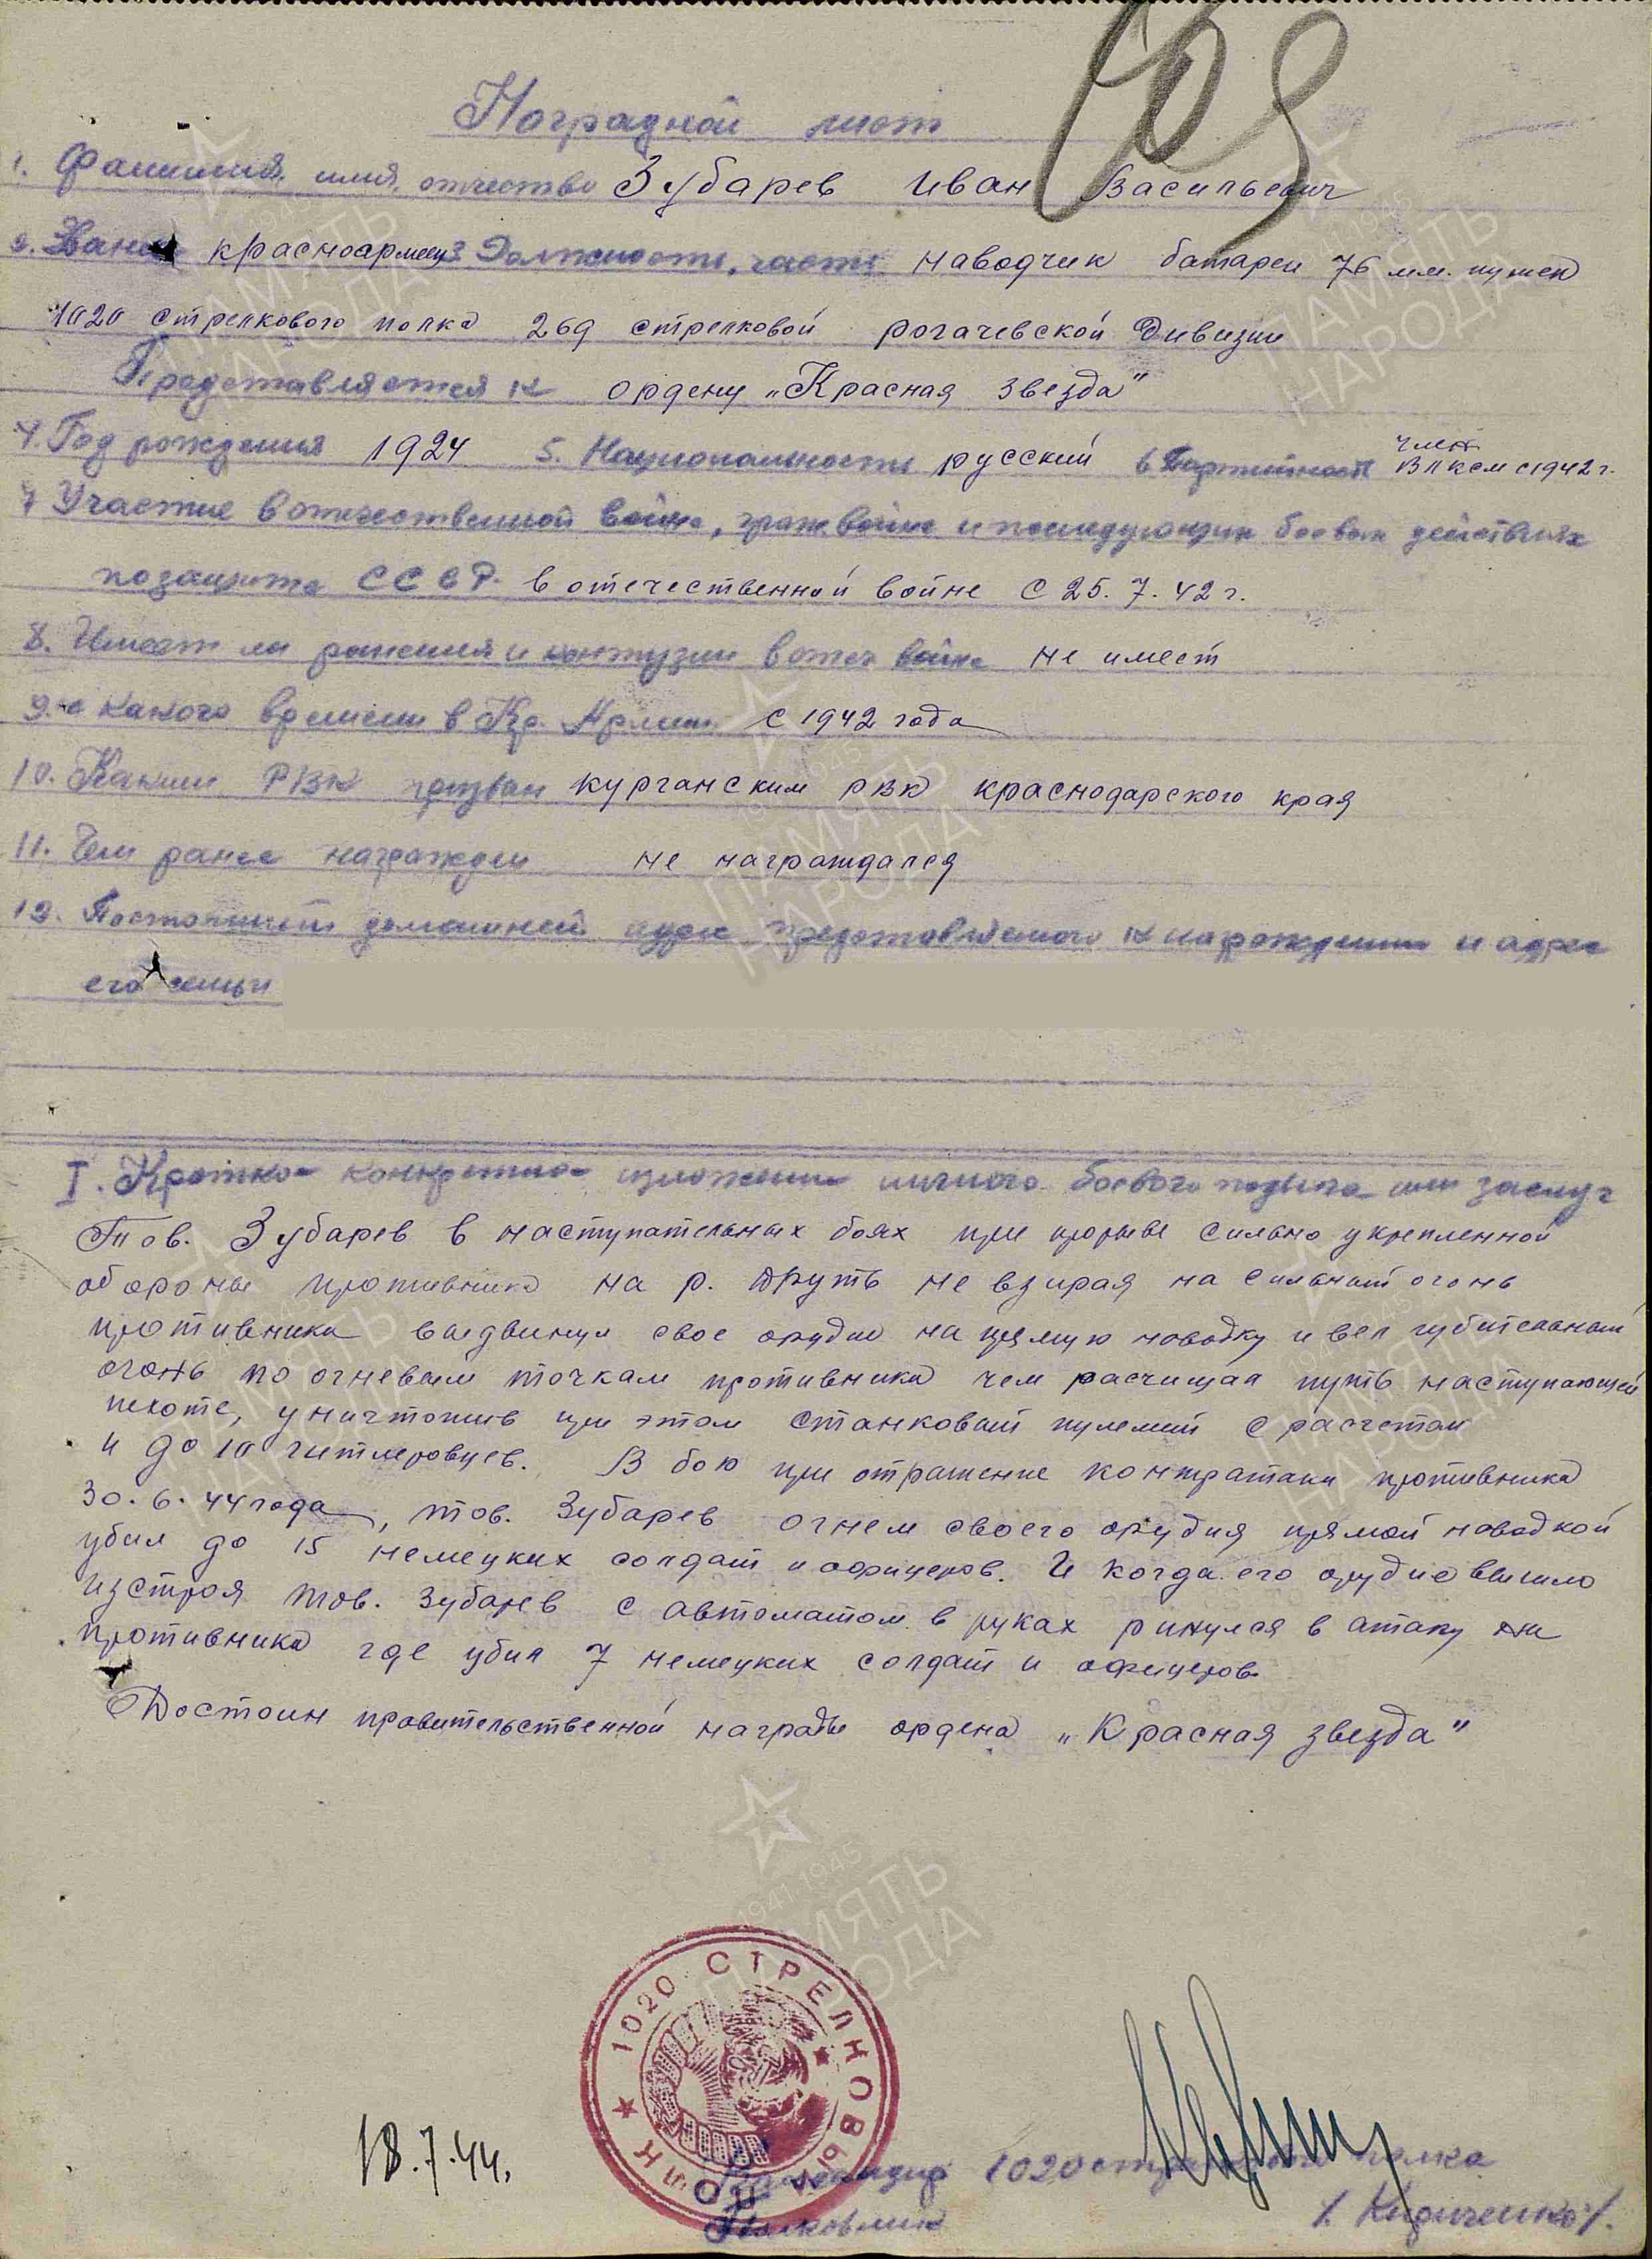 Наградной лист
1. Фамилия, имя, отчество Зубарев Иван Васильевич
2. Звание красноармеец 3 Должность, часть наводчик батареи 76 мм. пушек
1020 стрелкового полка 269 стрелковой рогачевской дивизии
Представляется к ордену „Красная звезда"
4. Год рождения 1924 5. Национальность русский 6 Партийность член ВЛКСМ с 1942 г.
7 Участие в отечественной войне, граж войне и последующих боевых действиях
по защите СССР в отечественной войне с 25.7.42 г.
8. Имеет ли ранения и контузии в отеч войне не имеет
9. с какого времени в Кр. Армии с 1942 года
10. Каким РВК призван курганским рвк краснодарского края
11. Чем ранее награжден не награждался
12. Постоянный домашний адрес представляемого к награждению и адрес
его семьи
I. Краткое конкретное изложение личного боевого подвига или заслуг
Тов. Зубарев в наступательных боях при прорыве сильно укрепленной
обороны противника на р. Друть не взирая на сильный огонь
противника выдвинул свое орудие на прямую наводку и вел губительный
огонь по огневым точкам противника чем расчищал путь наступающей
пехоте, уничтожив при этом станковый пулемет с расчетом
и до 10 гитлеровцев. В бою при отражение контратаки противника
30.6.44 года, тов. Зубарев огнем своего орудия прямой наводкой
убил до 15 немецких солдат и офицеров. И когда его орудие вышло
из строя тов. Зубарев с автоматом в руках ринулся в атаку на
противника где убил 7 немецких солдат и офицеров.
Достоин правительственной награды ордена „Красная звезда"
1020 СТРЕЛКОВЫЙ ПОЛК
18.7.44.
Командир 1020 стрелкового полка
Полковник /Кириченко/.
ПАМЯТЬ НАРОДА
1941-1945